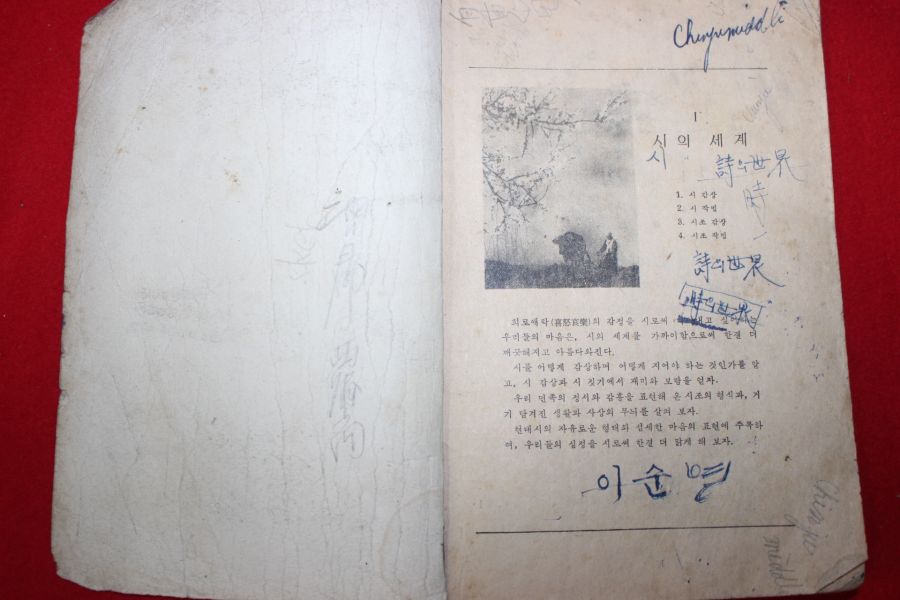 Chinju midd li
I
시의 세계
시 詩의世界
1. 시 감상
2. 시 작법
3. 시조 감상
4. 시조 작법
時
詩의世界
희로애락(喜怒哀樂)의 감정을 시로써
우리들의 마음은, 시의 세계를 가까이함으로써 한결 더
깨끗해지고 아름다와진다.
시를 어떻게 감상하며 어떻게 지어야 하는 것인가를 알
고, 시 감상과 시 짓기에서 재미와 보람을 얻자.
우리 민족의 정서와 감흥을 표현해 온 시조의 형식과, 거
기 담겨진 생활과 사상의 무늬를 살펴 보자.
현대시의 자유로운 형태와 섬세한 마음의 표현에 주목하
여, 우리들의 심정을 시로써 한결 더 맑게 해 보자.
이순열
Chinju
middl